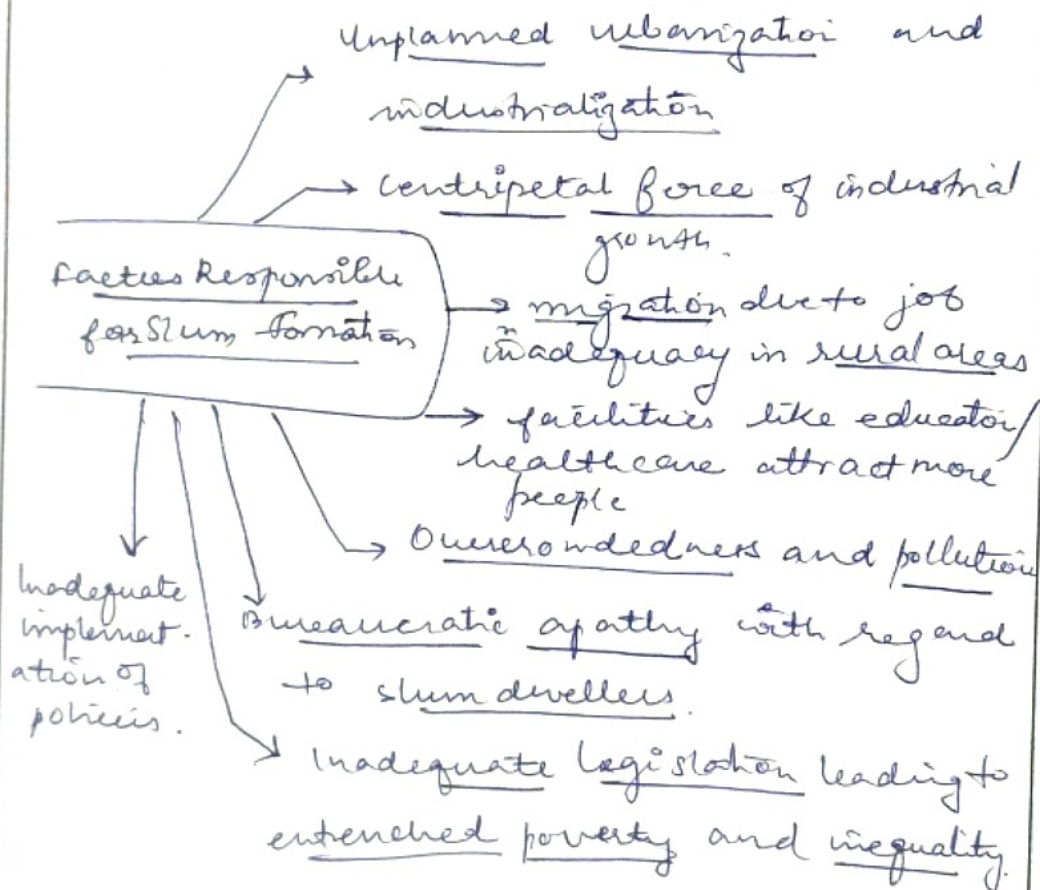 Unplanned urbanization and
industrialization
Centripetal force of industrial
growth.
Factors Responsible
for Slum Formation
migration due to job
inadequacy in rural areas
facilities like education/
healthcare attract more
people
Overcrowdedness and pollution
Inadequate
implement-
ation of
policies.
Bureaucratic apathy with regard
to slum dwellers.
Inadequate legislation leading to
entrenched poverty and inequality.